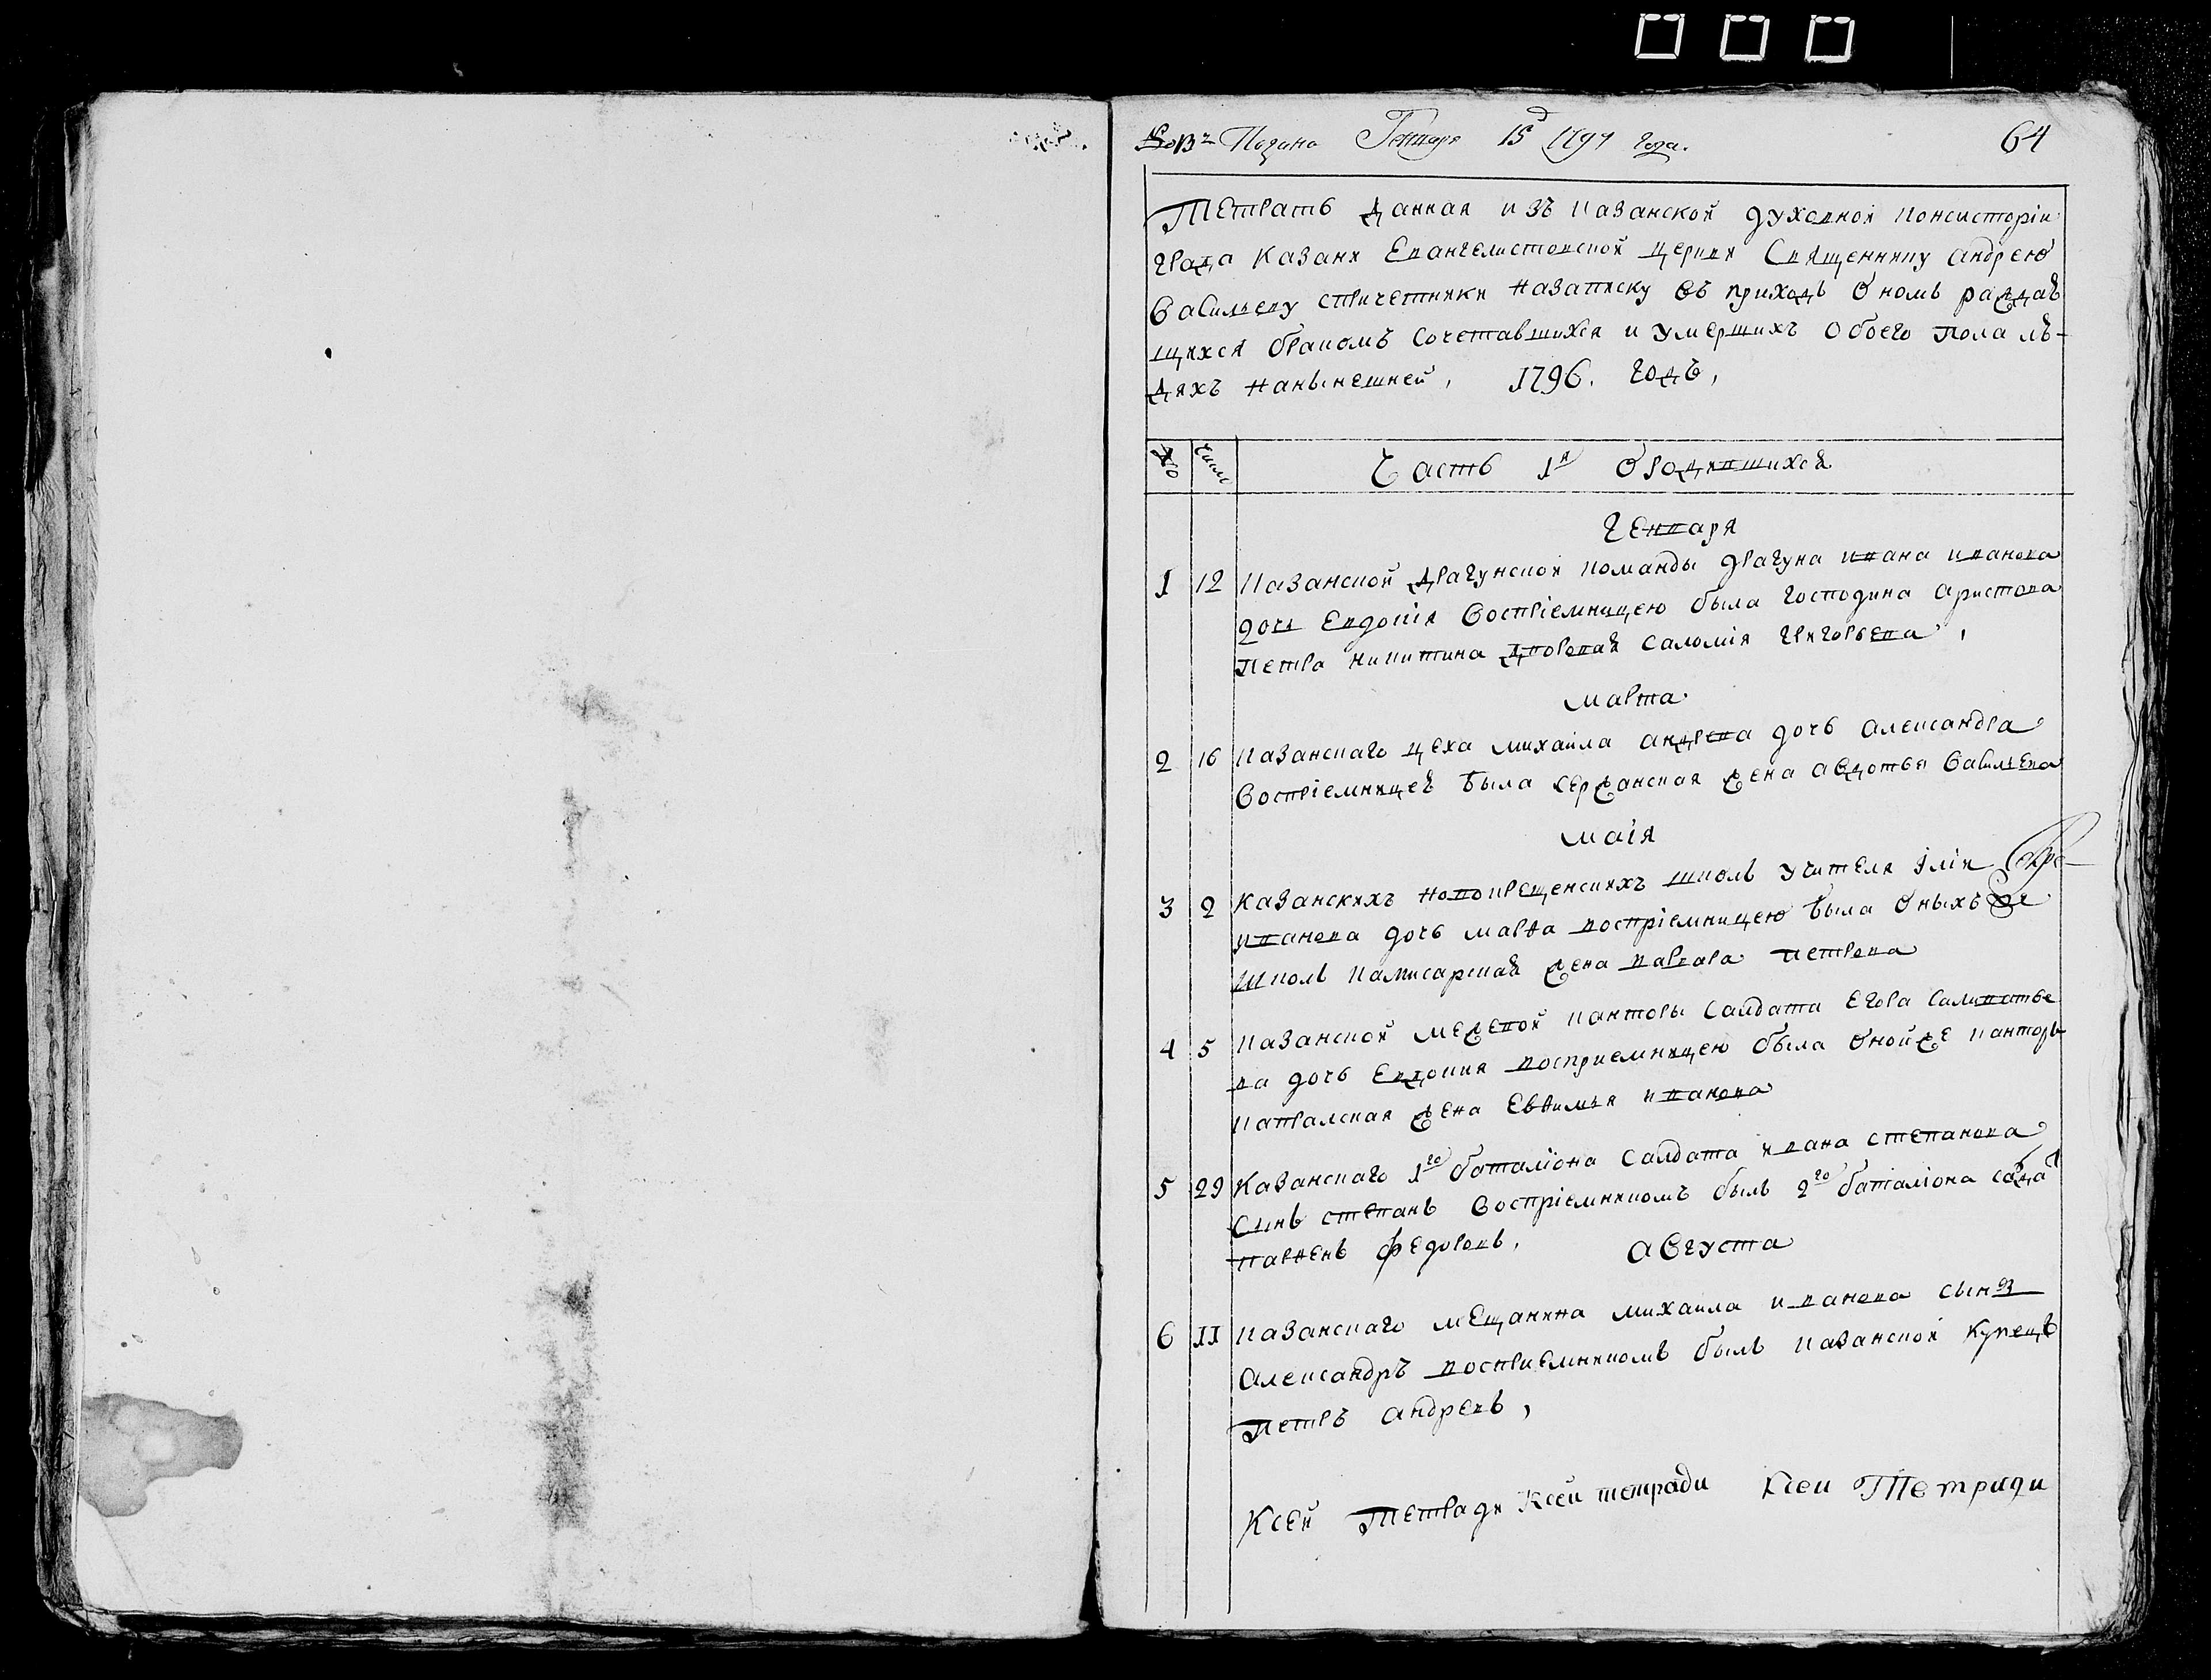 Подано Генваря 15 д 1797 года. 64
Тетрать данная изъ казанской духовной консисторіи
града Казани Евангелистовской церкви Священнику андрею
Васильеву спричетники назаписку въ приходѣ ономъ раждаю
щихся бракомъ сочетавшихся и умершихъ обоего пола лю-
дяхъ нанынешней, 1796. годъ,
№ Числ Часть 1я ородившихся
генваря
1 12 казанской драгунской команды драгуна ивана иванова
дочь Евдокія воспріемницею была господина аристова
петра никитина дворовая саломія григорьева,
марта
2 16 казанскаго цеха михаила андреева дочь александра
воспріемницею была сержанская жена авдотья васильева
маія
3 2 Казанскихъ новокрещенскихъ школъ учителя іліи
иванова дочь марѳа воспріемницею была оныхъ же
школъ каписарская жена варвара петрова
4 5 казанской межевой канторы салдата егора
ва дочь Евдокия восприемницею была оной же канторы
капралская жена Евѳимья иванова
5 29 Казанскаго 1го баталіона салдата ивана степанова
сынъ степанъ воспріемникомъ былъ 2го баталіона салдатъ
парѳенъ федоровъ, августа
6 11 казанскаго мещанина михаила иванова сынъ
александръ восприемникомъ былъ казанской купецъ
петръ андреевъ,
Ксей тетради Ксеи тетради Ксеи Тетради